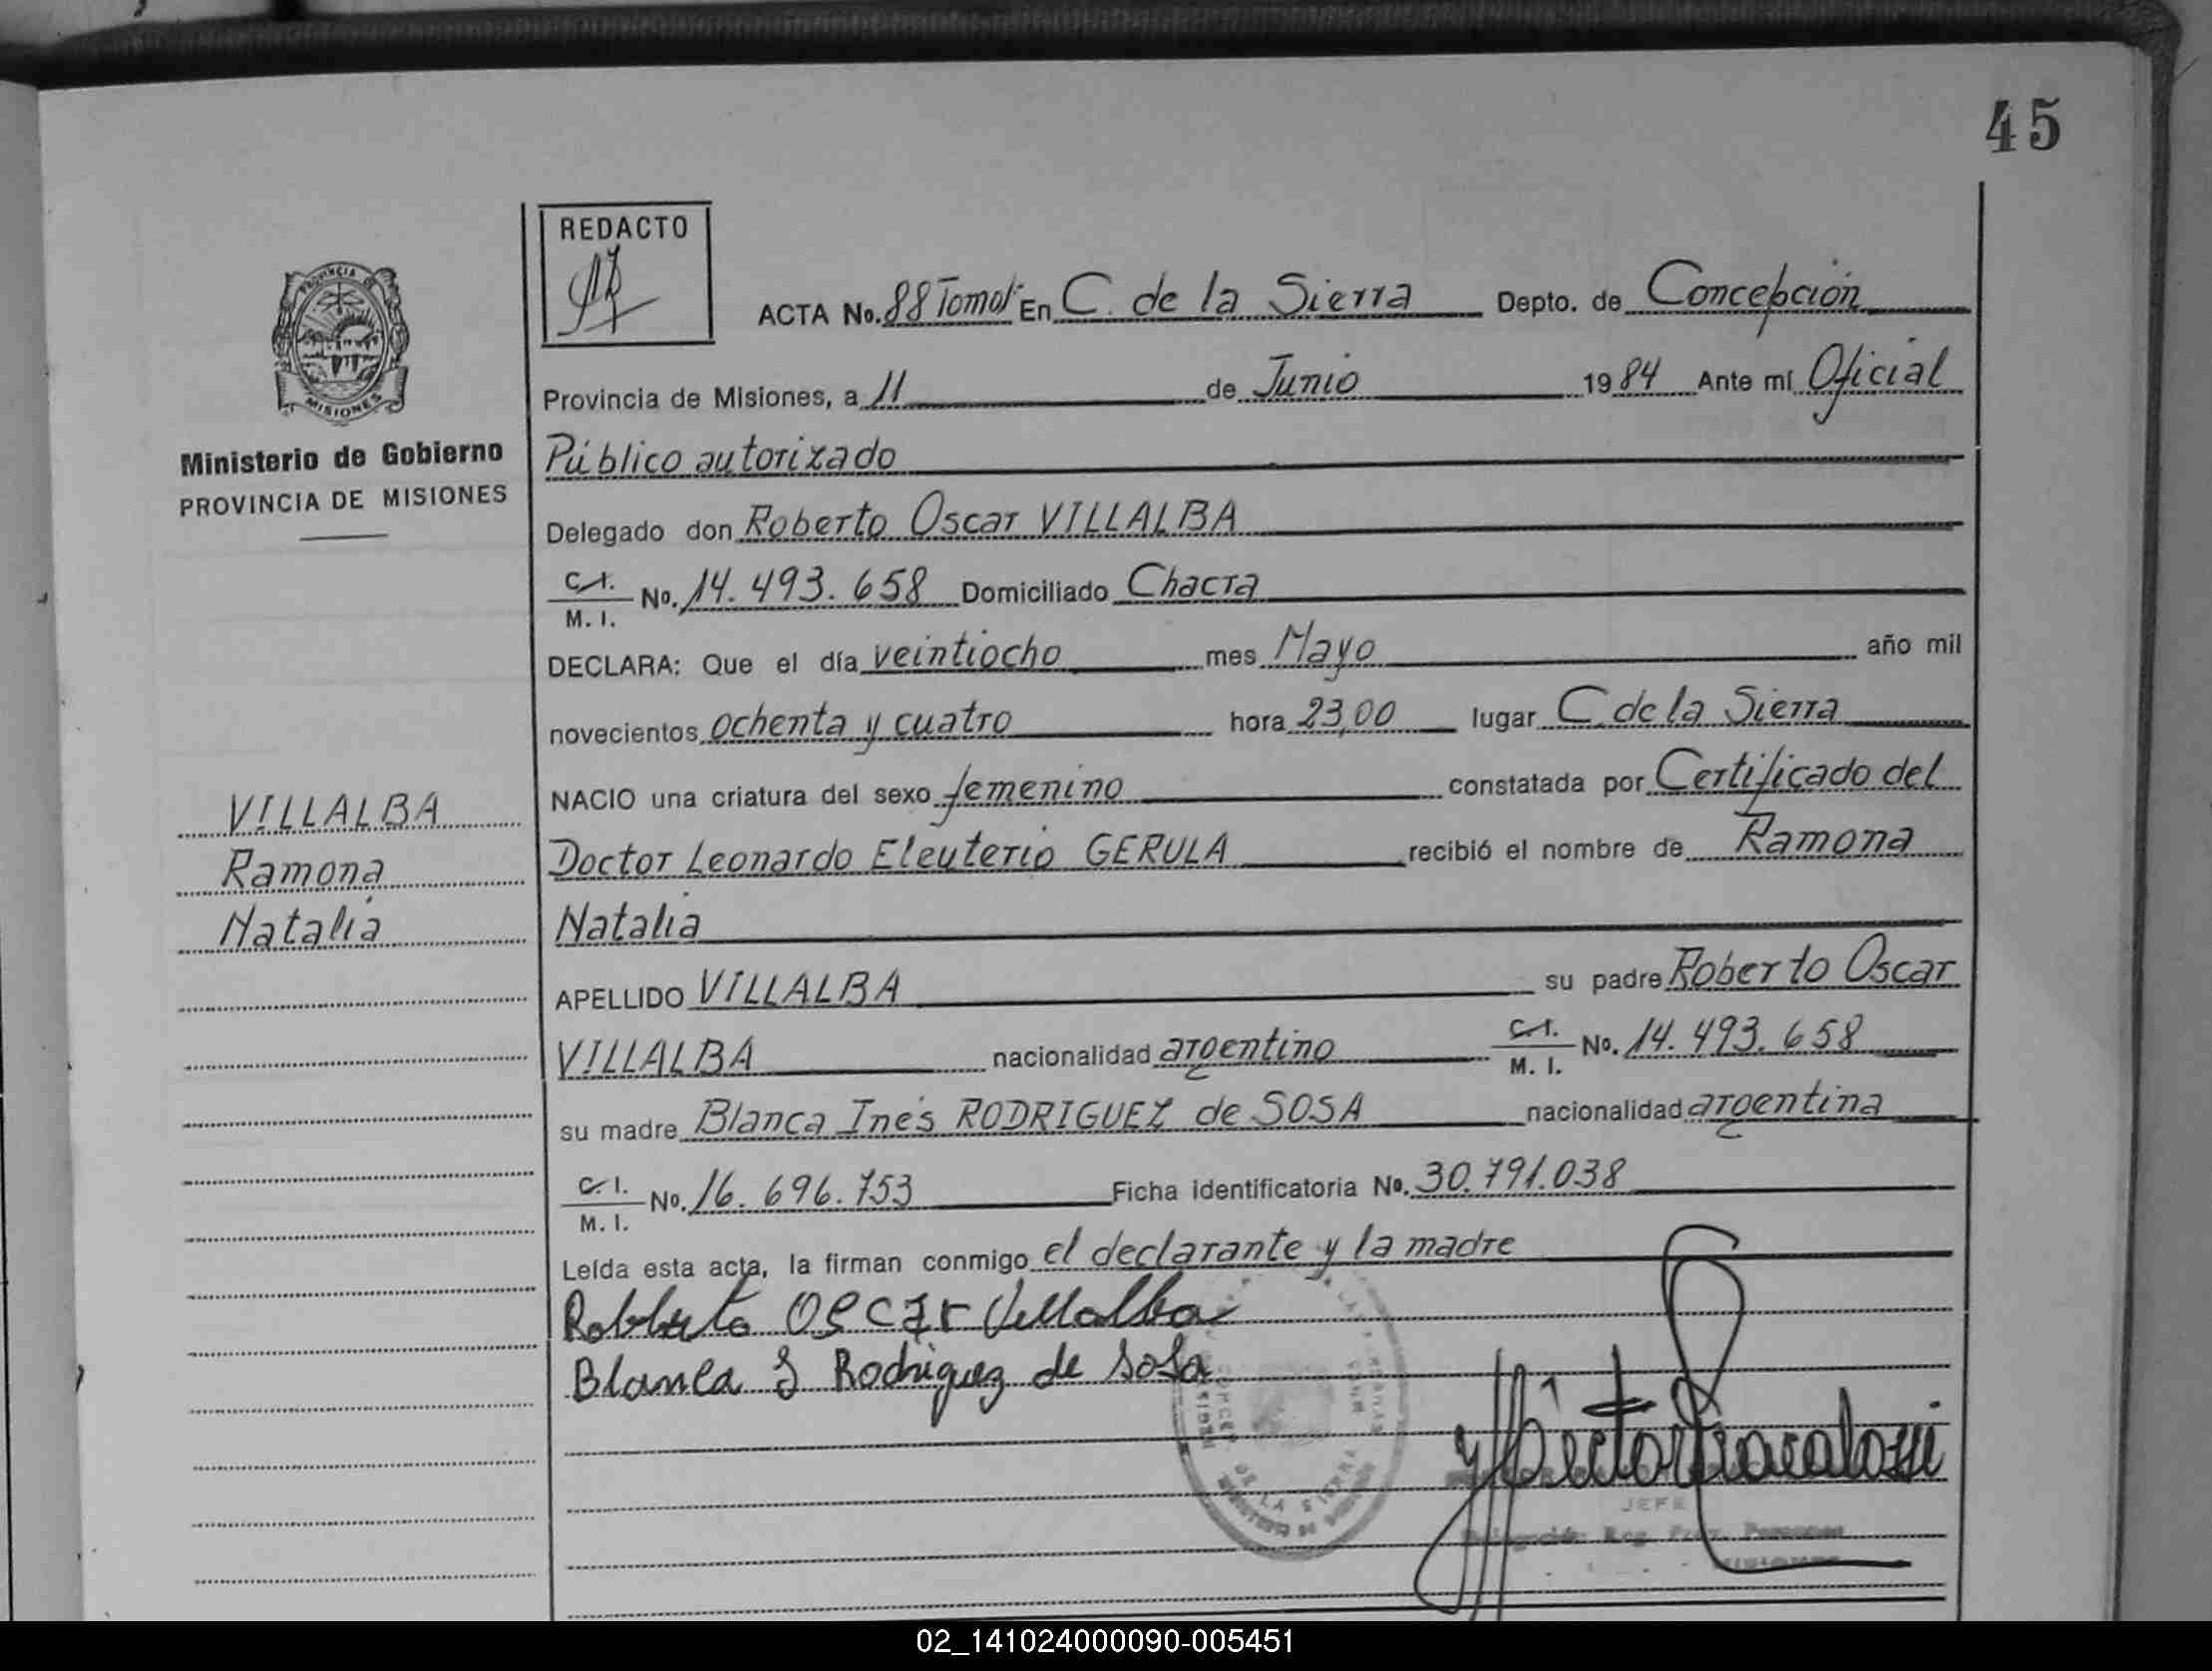 45
REDACTO
ACTA No. 88 Tomo I En C. de la Sierra Depto. de Concepción
PROVINCIA
MISIONES
Provincia de Misiones, a 11 de Junio 1984 Ante mí Oficial
Ministerio de Gobierno
Público autorizado
PROVINCIA DE MISIONES
Delegado don Roberto Oscar VILLALBA
C.I. M.I. No. 14.493.658 Domiciliado Chacra
DECLARA: Que el día veintiocho mes Mayo año mil
novecientos ochenta y cuatro hora 23,00 lugar C. de la Sierra
NACIO una criatura del sexo femenino constatada por Certificado del
VILLALBA
Doctor Leonardo Eleuterio GERULA recibió el nombre de Ramona
Ramona
Natalia
Natalia
APELLIDO VILLALBA su padre Roberto Oscar
VILLALBA nacionalidad argentino C.I. M.I. No. 14.493.658
su madre Blanca Inés RODRIGUEZ de SOSA nacionalidad argentina
C.I. M.I. No. 16.696.753 Ficha identificatoria No. 30.791.038
Leída esta acta, la firman conmigo el declarante y la madre
Robberto Oscar Villalba
Blanca I Rodriguez de Sosa
DE LA SIERRA
JEFE
MISIONES
02_141024000090-005451